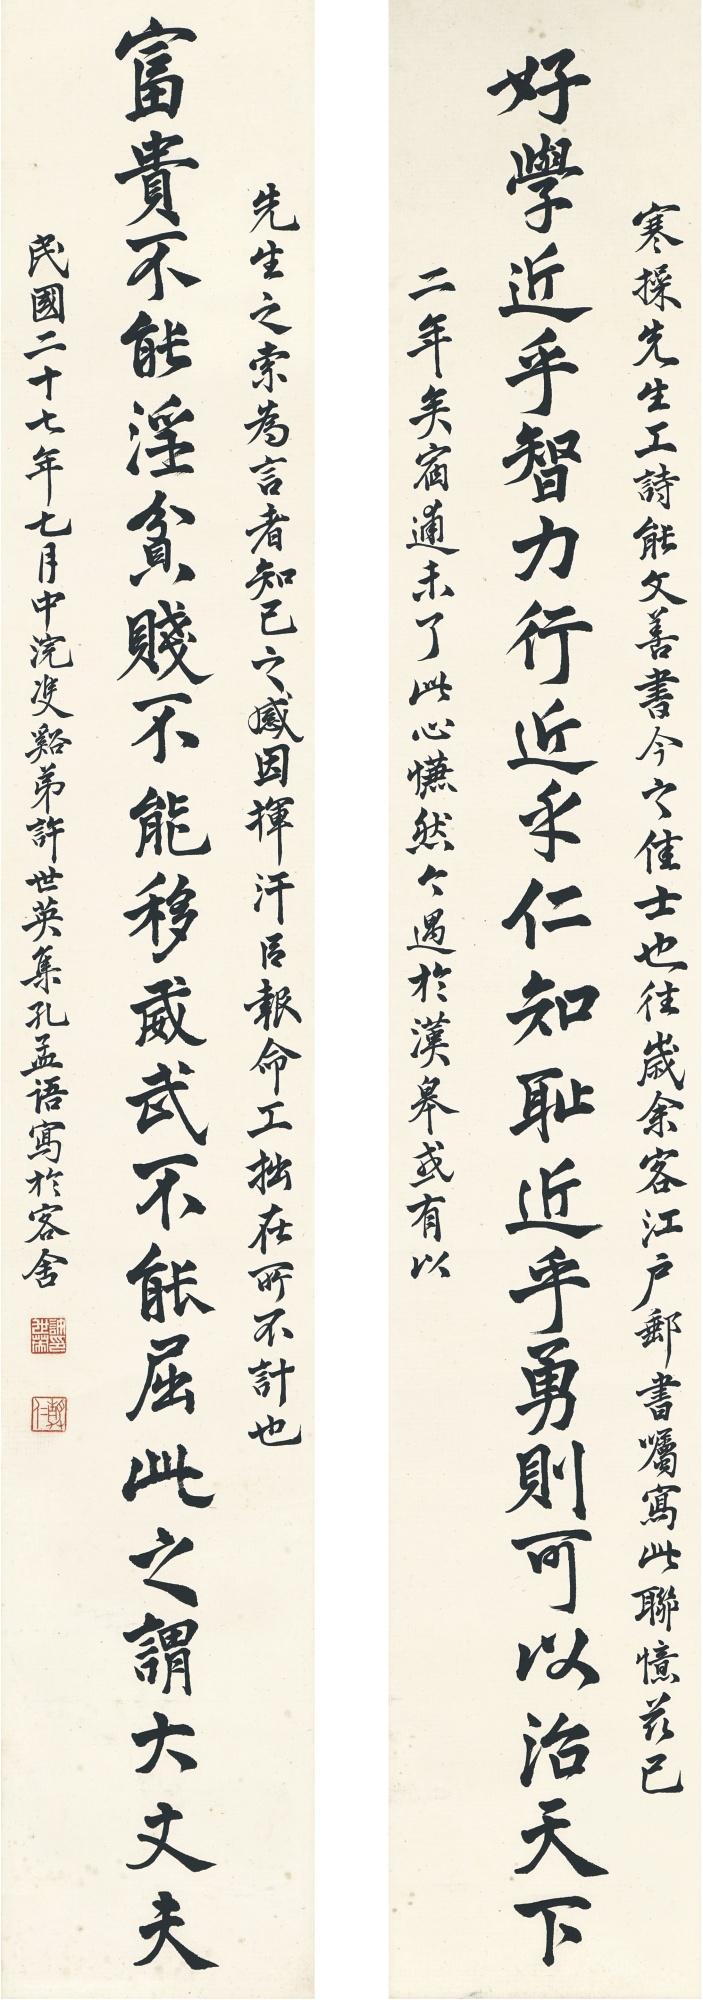 寒操先生工詩能文善書今之佳士也往歲余客江户郵書囑寫此聯憶茲已
好學近乎智力行近乎仁知恥近乎勇則可以治天下
二年矣宿逋未了此心憮然今遇於漢皋或有以
先生之索為言者知已之感因揮汗㠯報命工拙在所不計也
富貴不能淫貧賤不能移威武不能屈此之謂大丈夫
民國二十七年七月中浣雙谿弟許世英集孔孟語寫於客舍